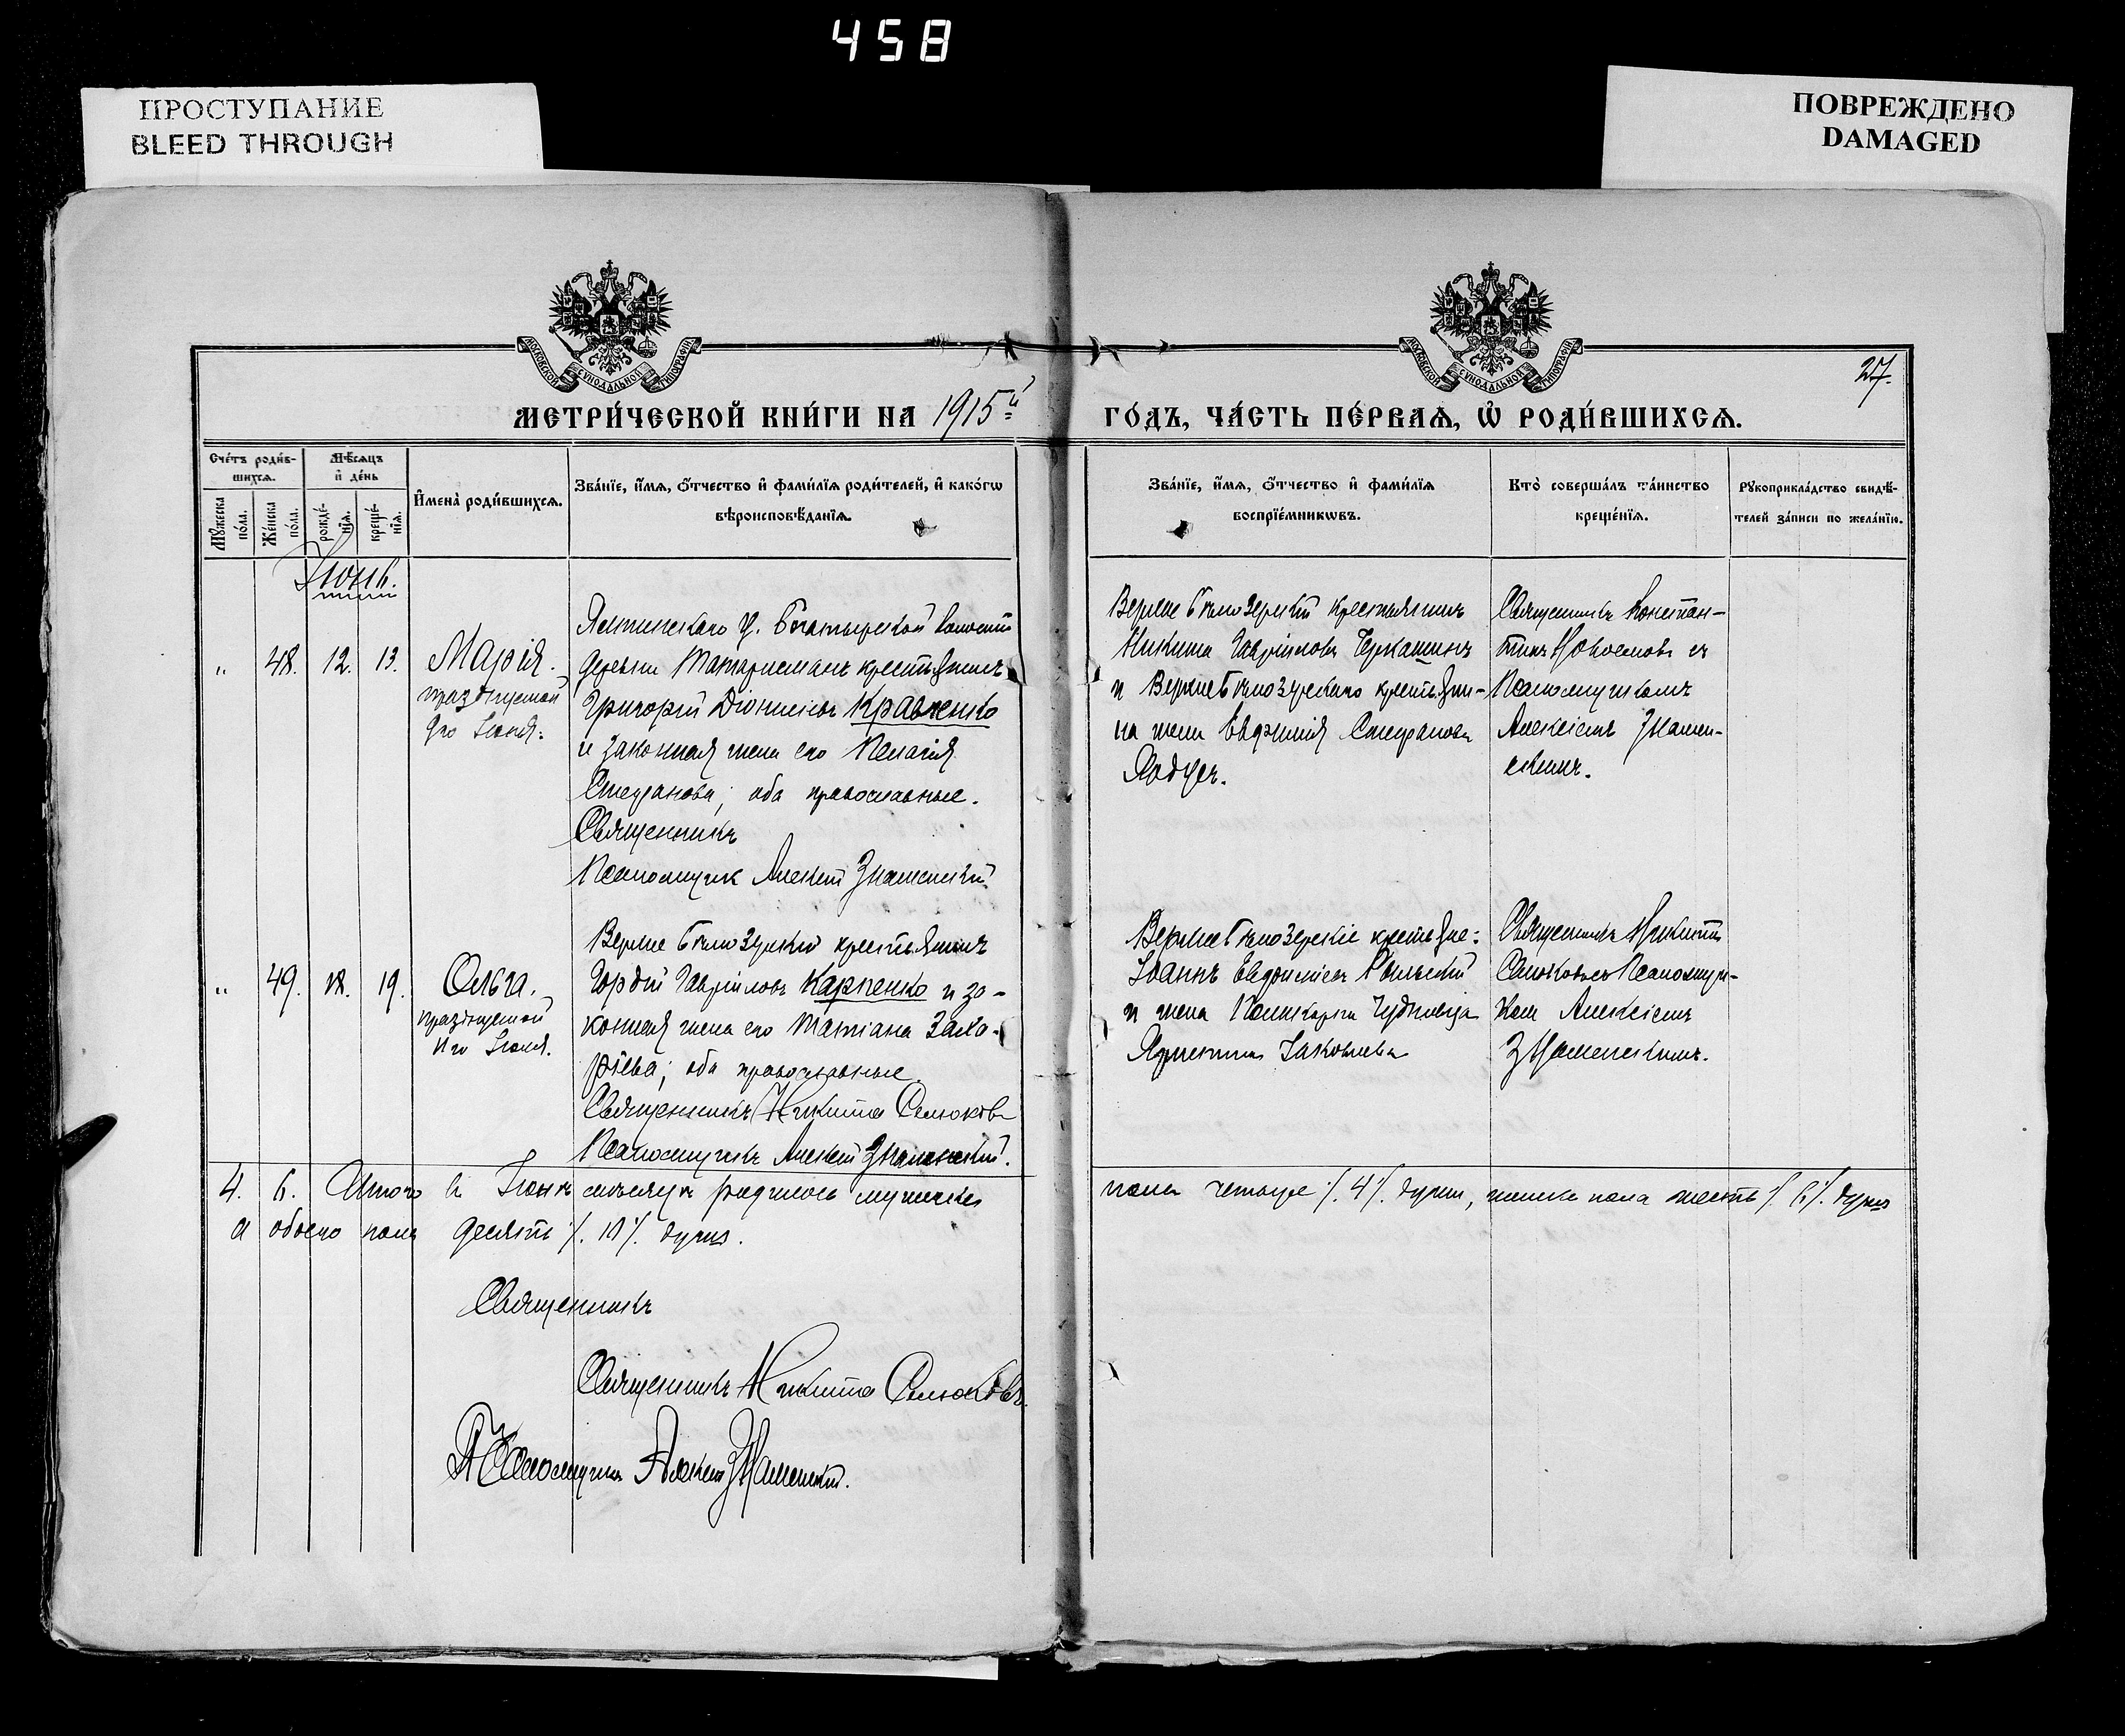 458
ПРОСТУПАНИЕ
BLEED THROUGH
ПОВРЕЖДЕНО
DAMAGED
МОСКОВСКОЙ СѴНОДАЛЬНОЙ ТИПОГРАФІИ
МОСКОВСКОЙ СѴНОДАЛЬНОЙ ТИПОГРАФІИ
27.
МЕТРИ́ЧЕСКОЙ КНИ́ГИ НА 1915й
ГО́ДЪ, ЧА́СТЬ ПЕ́РВАѦ, Ѡ҆ РОДИ́ВШИХСѦ.
Сче́тъ роди́в-
шихсѧ.
Мꙋ́жеска по́ла.
Же́нска по́ла.
Мѣ́сѧцъ
и҆ де́нь
рожде́-
нїѧ.
креще́-
нїѧ.
И҆мена̀ роди́вшихсѧ.
Зва́нїе, и҆́мѧ, ѻ҆́тчество и҆ фами́лїѧ роди́телей, и҆ како́гѡ
вѣроисповѣ́данїѧ.
Зва́нїе, и҆́мѧ, ѻ҆́тчество и҆ фами́лїѧ
воспрїе́мникѡвъ.
Кто̀ соверша́лъ та́инство
креще́нїѧ.
Рꙋкоприкла́дство свидѣ́-
телей за́писи по жела́нїю.
Іюнь.
„ 48. 12. 13.
Марія.
празднуемой
9го Іюня.
Ялтинскаго у. Богатырской волости
деревни Татарисманъ крестьянинъ
Григорій Діонисіевъ Кравченко
и законная жена его Пелагія
Стефанова; оба православные.
Священникъ
Псаломщикъ Алексій Знаменскій
Верхне Бѣлозерскій крестьянинъ
Никита Гавріиловъ Черкашинъ
и Верхнебѣлозерскаго крестьяни-
на жена Евфимія Стефанова
Священникъ Констан-
тинъ съ
Псаломщикомъ
Алексіемъ Знамен-
скимъ.
„ 49. 18. 19.
Ольга.
празднуемой
11го Іюля.
Верхне Бѣлозерскій крестьянинъ
Гордій Гавріиловъ Карпенко и за-
конная жена его Татіана Заха-
ріева; оба православные
Священникъ Никита Селюковъ
Псаломщикъ Алексій Знаменскій.
Верхнебѣлозерскіе крестьяне:
Іоаннъ Евфиміевъ
и жена Поликарпа
Іаковлева
Священникъ Никита
Селюковъ съ Псаломщи-
комъ Алексіемъ
Знаменскимъ.
4. 6. Итого въ Іюнѣ мѣсяцѣ родилось мужеска
пола четыре /. 4 /. души, женска пола шесть /. 6 /. душъ
а обоего пола десять /. 10 /. душъ.
Священникъ
Священникъ Никита Селюковъ.
Псаломщикъ Алексій Знаменскій.